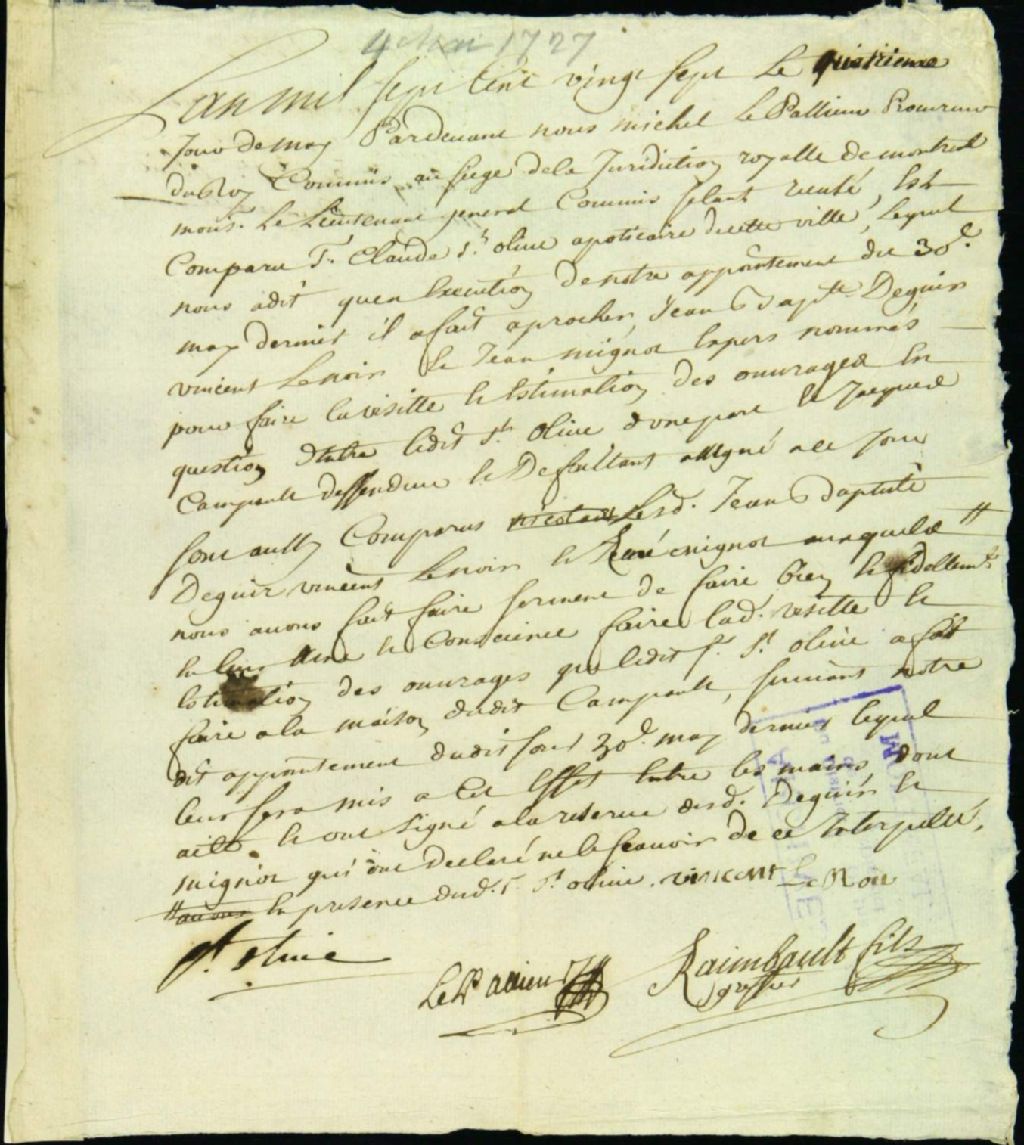 4 Mai 1727
Lan mil sept cent vingt sept Le quatrieme
Jour de may Pardevant nous michel Le Pallieur Procureur
du Roy Commis au siege dela Juridiction royalle de montreal
mons. Le Lieutenant general Commis Estant recusé, Est
Comparu Sr. Claude St. olive apoticaire decette ville, lequel
nous adit quen Execution de notre appointement du 30e.
may dernier il a fait aprocher, Jean Bapte. Deguir
vincent Lenoir et Jean mignot Expers nommés
pour faire la visitte et Estimation des ouvrages En
question Entre ledit Sr. St. Olive dune part et Jacques
Campault deffendeur et Deffaillant assigné a ce Jour
sont aussy Comparus lesd. Jean Baptiste
Deguir vincent Lenoir et René mignot ausquels
nous avons fait faire serment de faire bien et fidellemt.
En leur Ame et Conscience faire lad. visitte et
Estimation des ouvrages que ledit Sr. St. olive a fait
faire a la maison dudit Campault, suivant notre
dit appointement dudit Jour 30e. may dernier lequel
leur sera mis a cet Effet Entre les mains dont
acte et ont signé a la reserve desd. Deguir et
mignot qui ont declaré ne le scavoir de ce Interpellé,
En presence dud. Sr. St. olive. vincent Le Noir
St. olive
LePallieur
Raimbault fils
greffier
ARCHIVES